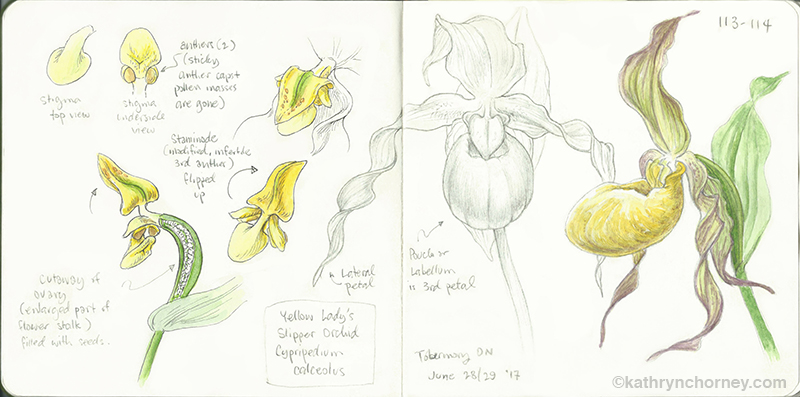 Stigma
top view
Stigma
underside
view
anthers (2)
(sticky
anther caps +
pollen masses
are gone)
Staminode
(modified, infertile
3rd anther)
flipped
up
Cutaway of
ovary
(enlarged part of
flower stalk)
filled with seeds.
Lateral
petal
Yellow Lady's
Slipper Orchid
Cypripedium
calceolus
113-114
Pouch or
Labellum
is 3rd petal
Tobermory ON
June 28/29 '17
©kathrynchorney.com